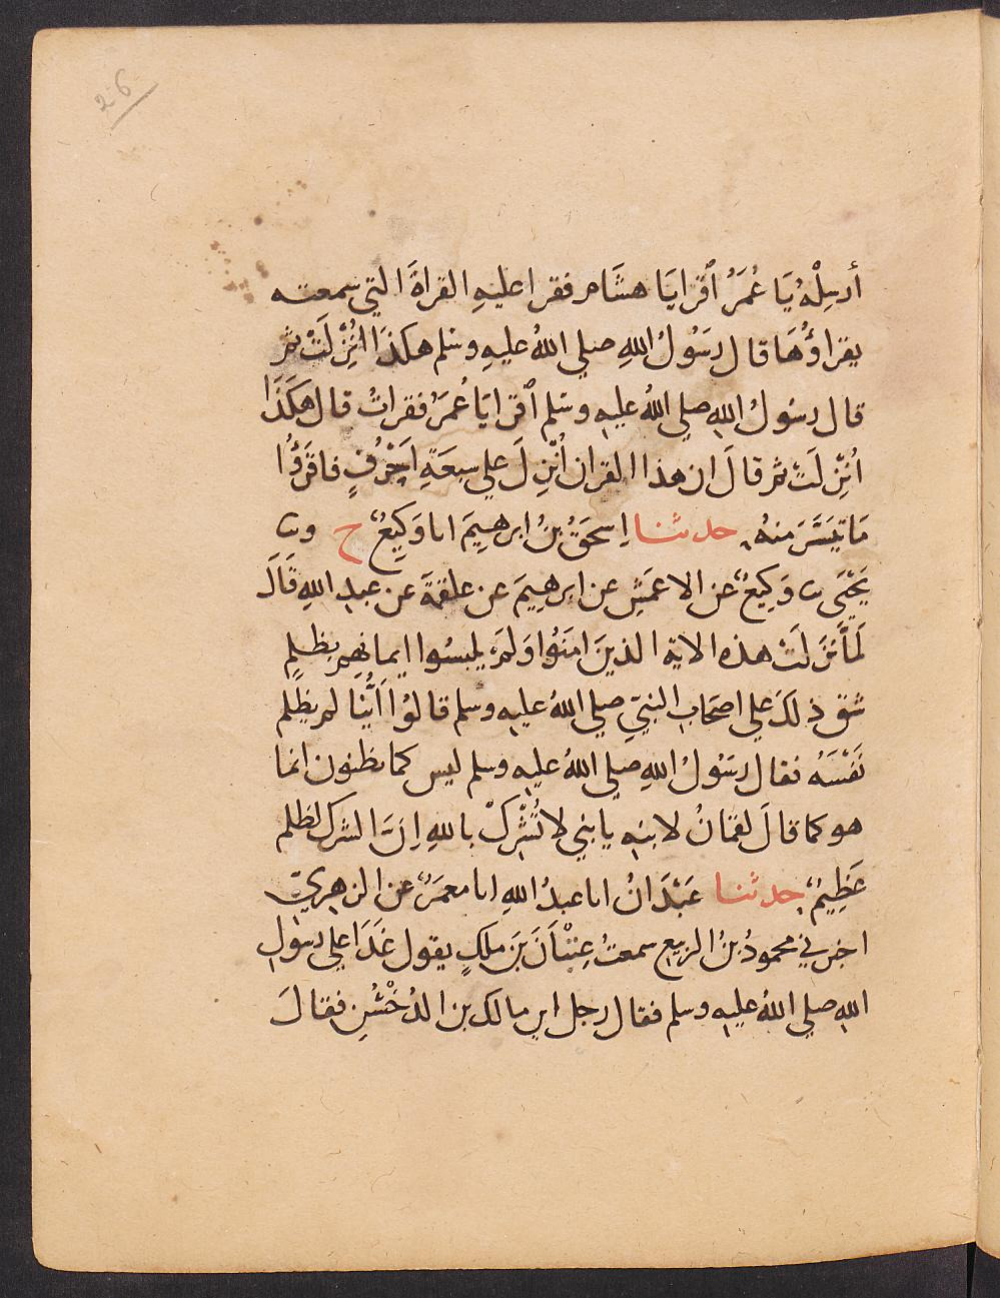 26
أرسِلْهُ يَا عُمَرُ اَقرا يَا هشَام فقرا عليهِ القراةَ التي سمعته
يقراؤُهَا قال رسَولُ اللهِ صلي اللهُ عليهِ وسَلم هكذَا انْزِلَتْ ثم
قال رسَولُ اللهِ صلي اللهُ عليهِ وسَلم اقرا يَا عُمَرُ فقراتُ قال هكَذَا
اُنْزِلَتْ ثم قالَ ان هذا القران اُنْزِلَ علي سبعَةِ اَحْرُفٍ فاقرَؤُا
مَا تيَسَّرَ منهُ حدثنا اِسحَقُ بنُ ابرهِيمَ انا وَكِيعٌ ح وثنا
يَحْيَى ثنا وَكِيعٌ عن الاعمَشِ عن ابرهِيمَ عن علقمَةَ عن عبدِ اللهِ قَالَ
لَمَّا نزَلَتْ هذه الاية الذينَ امَنُوا وَلَم يلبسُوا ايمانهم بظلمٍ
شق ذلكَ علي اصحَابِ النبيّ صلي اللهُ عليهِ وسلم قالوُا اَيُّنا لم يظلم
نَفْسَهُ فقال رسَولُ اللهِ صلي اللهُ عليهِ وسلم ليس كما تظنون انما
هو كما قالَ لقمَانُ لابنهِ يابني لا تُشْرِكْ باللهِ اِنَّ الشرك لظلم
عَظِيمٌ حدثنا عَبْدَانُ انا عبدُ اللهِ انا معمَرٌ عن الزهريّ
اخبرني محمودُ بنُ الربيع سمعتُ عِتْبَانَ بنَ ملِكٍ يقول غَدَا علي رسَولِ
اللهِ صلي اللهُ عليهِ وسلم فقال رجل اين مالك بن الدُخْشُنِ فقالَ